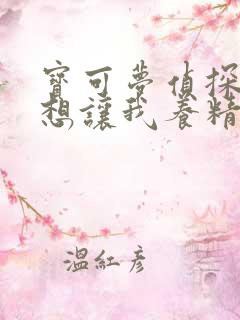 寶可夢偵探
想讓我養精
溫紅彥